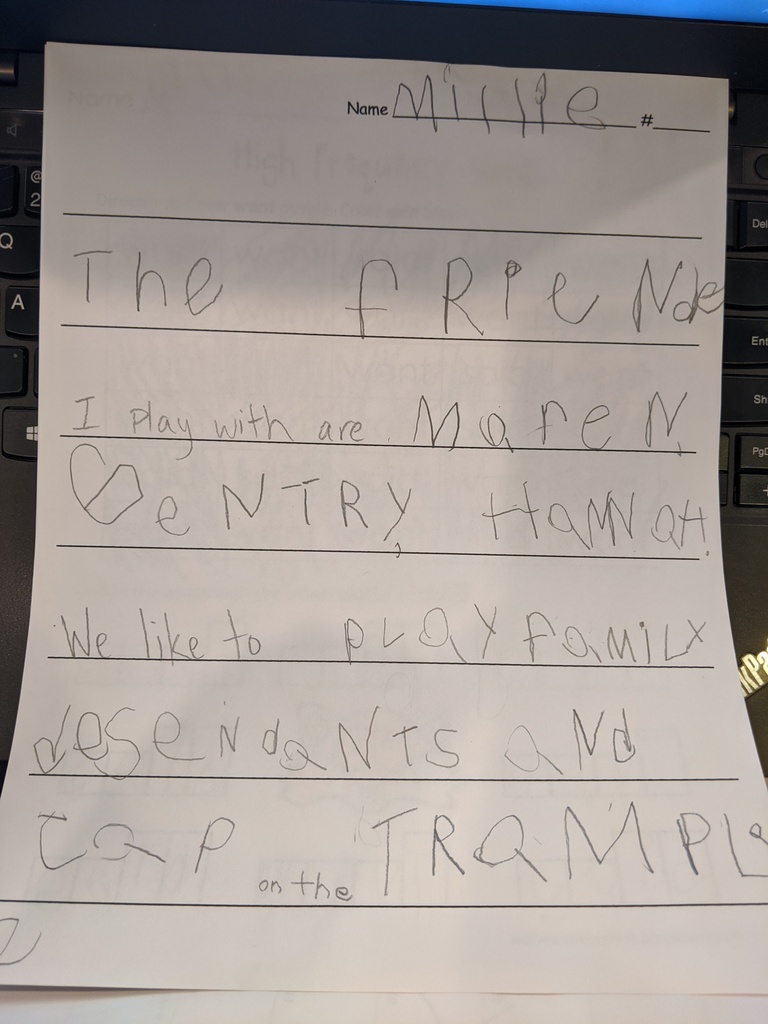 Name Millie #
The fRieNds
I play with are MareN,
GeNTRy, HaNNaH.
We like to pLaY FaMiLY
deseNdaNTs aNd
Tap on the TRaMPL